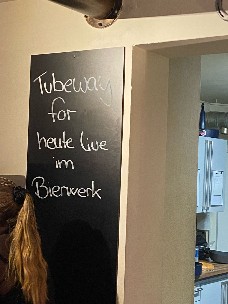 Tubeway
for
heute live
im
Bierwerk